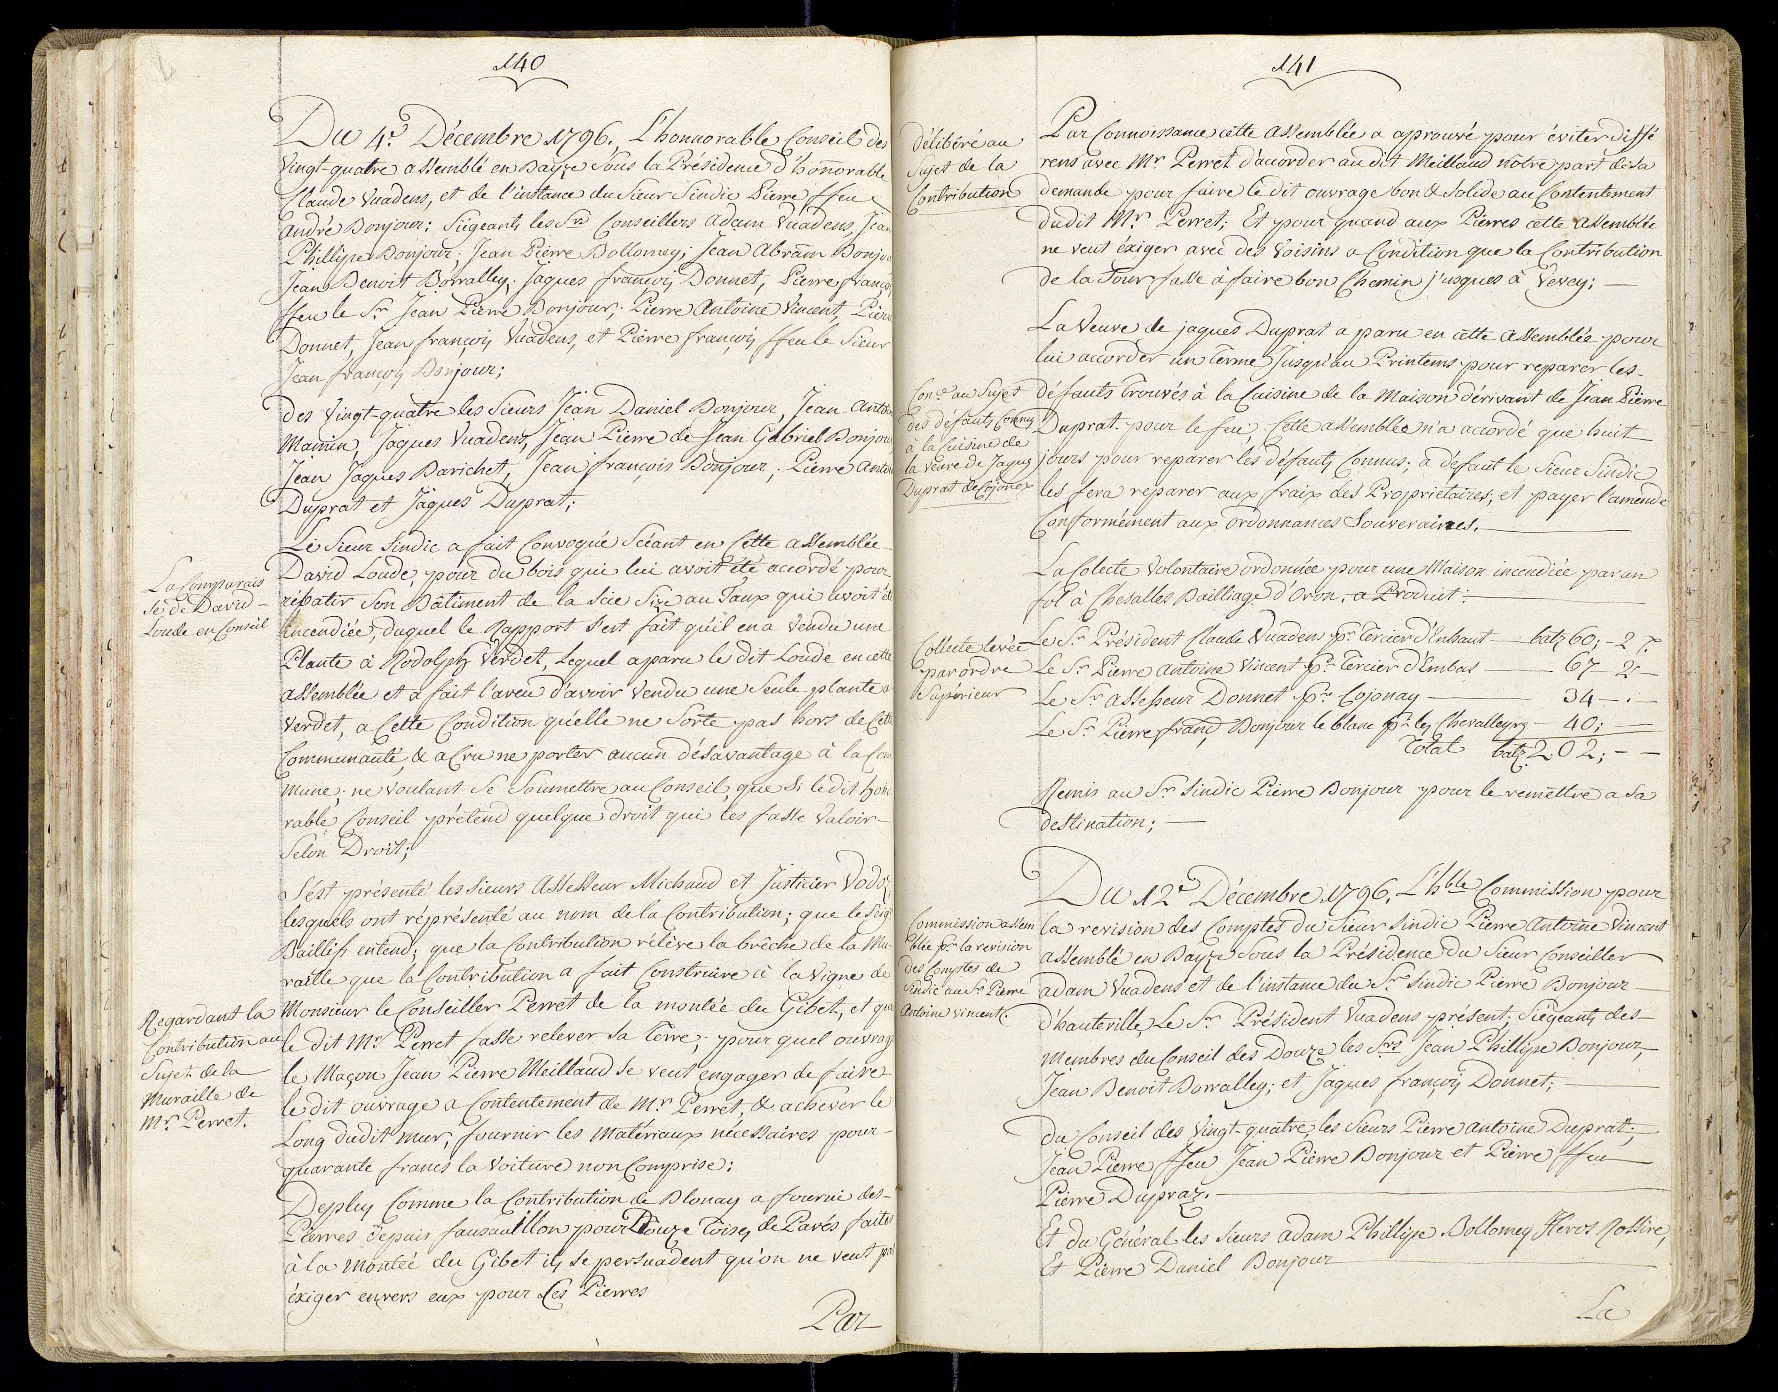 140
Du 4.e Décembre 1796. L'honnorable Conseil des
Vingt-quatre assemblé en Bayze sous la Présidence d'honnorable
Claude Vuadens, et de l'instance du Sieur Sindic Pierre ffeu
André Bonjour; Siégeants les Srs Conseillers Adam Vuadens, Jean
Phillipe Bonjour; Jean Pierre Bollomey; Jean Abram Bonjou
Jean Benoit Borralley; Jaques françois Donnet, Pierre françois
ffeu le Sr. Jean Pierre Bonjour; Pierre Antoine Vincent, Pierre
Donnet, Jean françois Vuadens, et Pierre françois ffeu le Sieur
Jean françois Bonjour;
des Vingt-quatre les Sieurs Jean Daniel Bonjour, Jean Antoi
Mamin, Jaques Vuadens, Jean Pierre de Jean Gabriel Bonjour
Jean Jaques Barichet, Jean françois Bonjour; Pierre Antoi
Duprat et Jaques Duprat;
Le Sieur Sindic a fait Convoqué Scéant en Cette assemblée
La Comparais
se de David
Loude en Conseil
David Loude, pour du bois qui lui avoit été accordé pour
rébatir Son Bâtiment de la Scie Size au Saux qui avoit été
incendiée, duquel le Rapport s'est fait qu'il en a Vendu une
Plante à Rodolph Verdet, Lequel a paru le dit Loude en cette
assemblée et a fait l'aveu d'avoir Vendu une Seule plante à
Verdet, a Cette Condition qu'elle ne Sorte pas hors de Cette
Communauté, & a Cru ne porter aucun désavantage à la Com
mune; ne voulant se Soumettre au Conseil, que Si le dit hono
rable Conseil prétend quelque droit qui les fasse Valoir
Selon Droit;
S'est présenté les Sieurs Assesseur Michaud et Justicier Vodoz
lesquels ont réprésenté au nom de la Contribution; que le Seigr
Baillif entend; que la Contribution rélève la brêche de la Mu-
raille que la Contribution a fait Construire à la Vigne de
Regardant la
Contribution au
Sujet de la
Muraille de
Mr. Perret.
Monsieur le Conseiller Perret de la montée du Gibet, et que
le dit Mr Perret fasse relever sa Terre; pour quel ouvrage
le Maçon Jean Pierre Meilland se veut engager de faire
le dit ouvrage a Contentement de Mr Perret, & achever le
Long dudit mur, fournir les Matériaux nécessaires pour-
quarante francs la Voiture non Comprise;
Deplus Comme la Contribution de Blonay a fourni des-
Pierres depuis fausauillon pour Douze Toises de Pavés faites
à la Montée du Gibet ils se persuadent qu'on ne veut pas
éxiger envers eux pour Les Pierres
Par
141
délibéré au
Sujet de la
Contribution
Par Connoissance cette Assemblée a aprouvé pour éviter diffé
rens avec Mr Perret d'accorder au dit Meilland nôtre part de sa
demande pour faire le dit ouvrage bon & Solide au Contentement
dudit Mr. Perret; Et pour quand aux Pierres cette Assemblée
ne veut éxiger avec des Voisins a Condition que la Contribution
de la Tour fasse à faire bon Chemin j'usques à Vevey;
La Veuve de jaques Duprat a paru en cette Assemblée pour
lui accorder un terme Jusqu'au Printems pour reparer les-
Con.ce au Sujet
des défauts Connus
à la Cuisine de
la Veuve de Jaques
Duprat de Cojonex
défauts trouvés à la Cuisine de la Maison dérivant de Jean Pierre
Duprat. pour le feu, Cette assemblée n'a accordé que huit
jours pour reparer les défauts Connus; à défaut le Sieur Sindic
les fera reparer aux fraix des Proprietaires, et payer l'amende
Conformément aux ordonnances Souveraines.
La Colecte Volontaire ordonnée pour une Maison incendiée par un
fol à Chesalles Bailliage d'Oron, a Produit:
Collecte levée
par ordre
Supérieur
Le Sr. Président Claude Vuadens pr. Tercier d'Enhaut batz 60; - 2
Le Sr. Pierre Antoine Vincent pr. Tercier d'Embas 67 2
Le Sr. Assesseur Donnet pr. Cojonay 34 - . -
Le Sr. Pierre franc Bonjour le blanc pr. les Chevalleyrs 40;
Total batz 202; - -
Remis au Sr. Sindic Pierre Bonjour pour le remettre a sa
destination;
Du 12.e Décembre 1796. L'hble Commission pour
Commission assem
blée pr. la revision
des Comptes de
Sindic au Sr. Pierre
Antoine Vincent.
la revision des Comptes du Sieur Sindic Pierre Antoine Vincent
assemblé en Bayze Sous la Présidence du Sieur Conseiller
Adam Vuadens et de l'instance du Sr. Sindic Pierre Bonjour
d'hauteville, Le Sr. Président Vuadens présent. Siégeants des-
membres du Conseil des Douze les Srs Jean Phillipe Bonjour,
Jean Benoit Borralley; et Jaques françois Donnet;
du Conseil des Vingt-quatre, les Sieurs Pierre Antoine Duprat;
Jean Pierre ffeu Jean Pierre Bonjour et Pierre ffeu
Pierre Dupraz.
Et du Général les Sieurs Adam Phillipe Bollomey Heros Rossire,
Et Pierre Daniel Bonjour
La